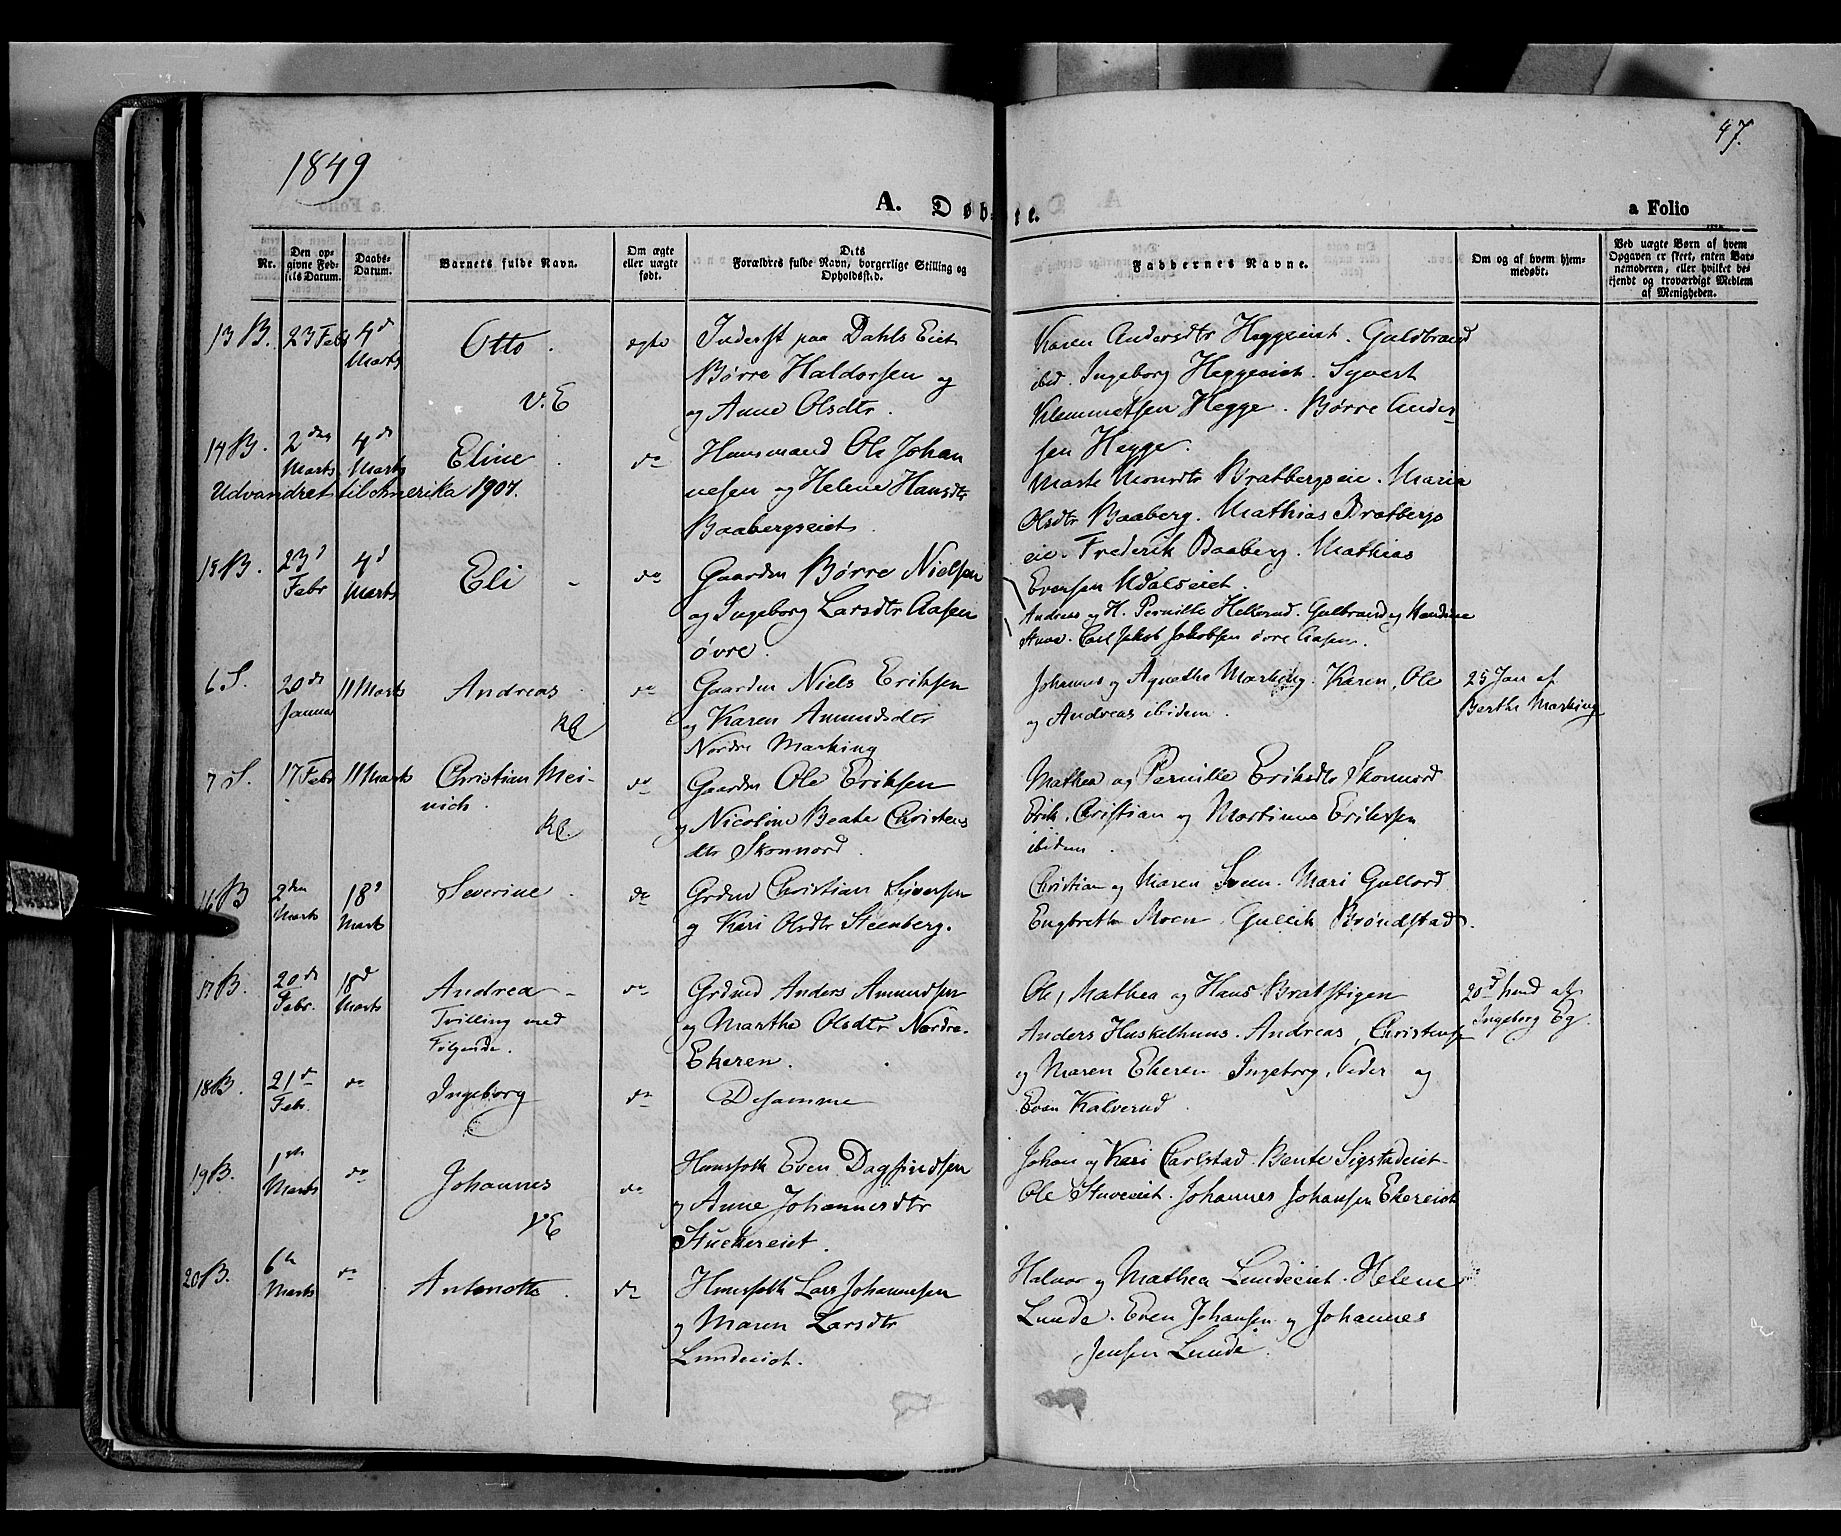 1849
47.
A. Døbte.
a Folio
Nr.
Den opgivne Fødsels Datum.
Daabs-Datum.
Barnets fulde Navn.
Om ægte eller uægte født.
Dets Forældres fulde Navn, borgerlige Stilling og Opholdssted.
Faddernes Navne.
Om og af hvem hjemmedøbt.
Ved uægte Børn af hvem Opgaven er skeet, enten Barnemoderen, eller hvilket bekjendt og troværdigt Medlem af Menigheden.
13 B. 23 Febr 4d Marts Otto. V.E ægte
Inderst paa Dahls Eiet
Børre Haldorsen og
og Anne Olsdtr.
Karen Andersdtr Heggeeiet. Guldbrand
ibid. Ingeborg Heggeeiet. Syvert
Klemmetsen Hegge. Børre Ander
sen Hegge.
14 B. 2den Marts 4de Marts Eline do
Udvandret til Amerika 1907.
Huusmand Ole Johan
nesen og Helene Hansdtr
Baabergseiet.
Marte Monsdtr Bratbergseie. Maria
Olsdtr Baaberg. Mathias Bratbergs
eie. Frederik Baaberg. Mathias
Evensen Udalseiet.
15 B. 23d Febr 4d Marts Eli do
Gaardm Børre Nielsen
og Ingeborg Larsdtr Aasen
øvre.
Andreas og H. Pernille Hellerud. Gulbrand og Handine
Stuve. Carl Jakob Jakobsen øvre Aasen.
6 S. 20de Januar 11 Marts Andreas do
Gaardm Niels Eriksen
og Karen Amundsdtr
Nordre Marking
Johannes og Agnethe Marking. Karen, Ole
og Andreas ibidem.
25 Jan af
Berthe Marking
7 S. 17 Febr 11 Marts Christian Mei-
nich. do
Gaardm Ole Eriksen
og Nicoline Beate Christens
dtr Skonnord.
Mathea og Pernille Eriksdtr Skonnord
Erik, Cristian og Martinus Eriksen
ibidem.
16 B 2den Marts 18d Marts Severine do
Grdmd Christian Syversen
og Kari Olsdtr Steenberg.
Christian og Maren Sveen. Mari Gullord
Engbrette Moen. Gullik Brøndstad.
17 B. 20de Febr. 18d Marts Andrea
Tvilling med
Følgende. do
Grdmd Anders Amundsen
og Marthe Olsdtr Nordre
Ekeren.
Ole, Mathea og Hans Bratstigen
Anders Huskelhuus. Andreas, Christense
og Maren Ekeren. Ingeborg, Peder og
Even Kalverud.
20d hmd af
Ingeborg Eg.
18 B. 21de Febr. do Ingeborg do Desamme
19 B. 1ste Marts do Johannes VE do
Huusfolk Even Dagfindsen
og Anne Johannesdtr
Stuckereiet.
Johan og Kari Carlstad. Bente Sigstadeiet
Ole Stuveeiet. Johannes Johansen Ekereiet
20 B. 6te Marts do Antonette do
Huusfolk Lars Johannesen
og Maren Larsdtr
Lundeeiet.
Halvor og Mathea Lundeeiet. Helene
Lunde. Even Johansen og Johannes
Jensen Lunde.